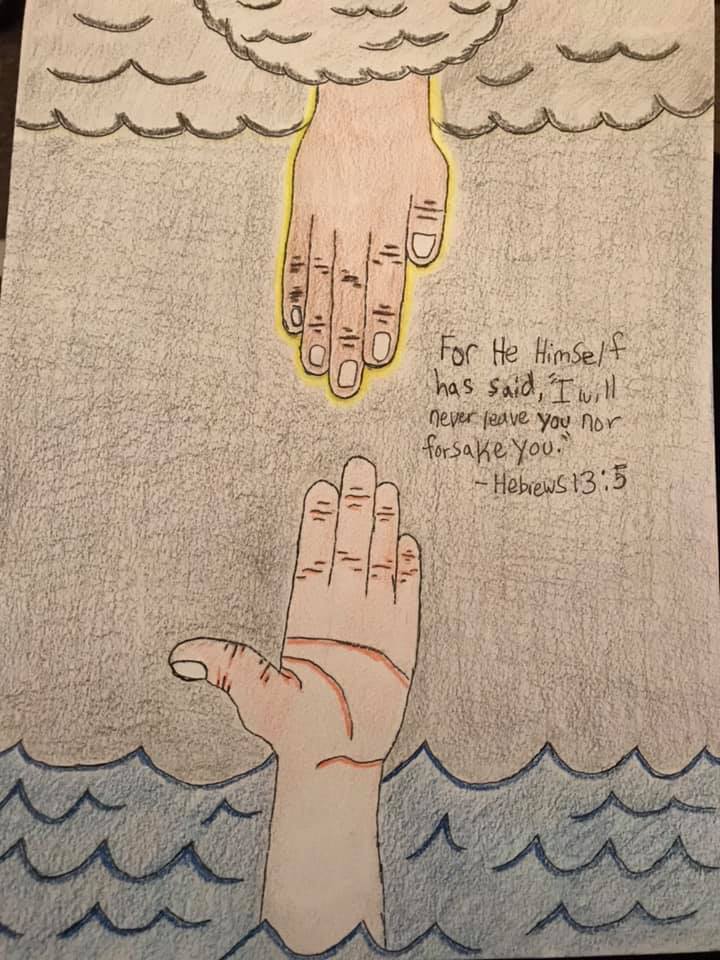 For He Himself
has said, "I will
never leave you nor
forsake you."
-Hebrews 13:5